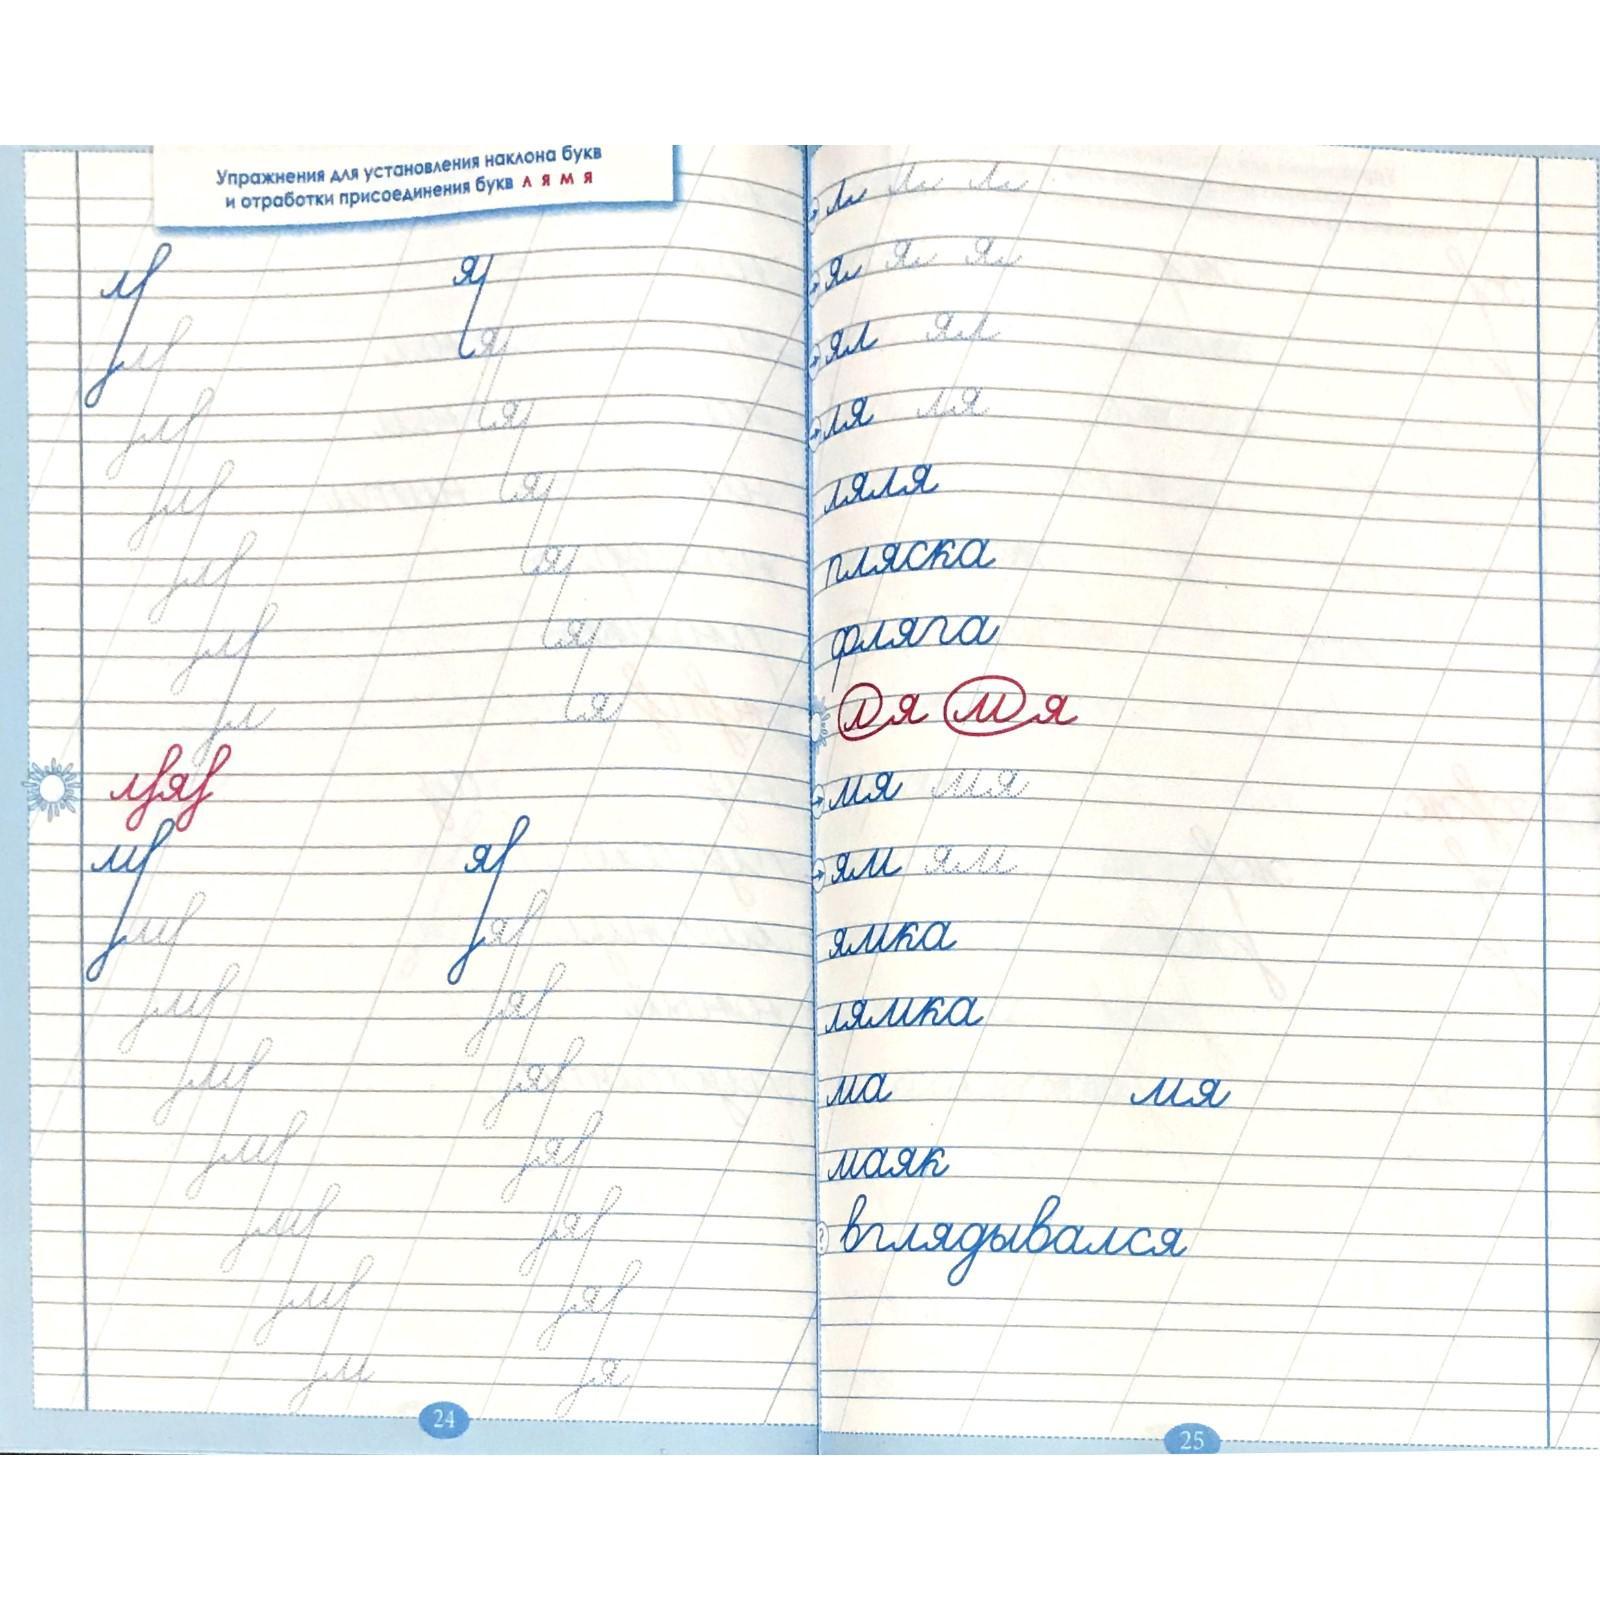 Упражнения для установления наклона букв
и отработки присоединения букв л я м я
л я
л я
л я
л я
л я
л я
л
я
ля
м я
м я
м я
м я
м я
м я
м я
м я
24
л л л
ял ял ял
ял ял
ля ля
ляля
пляска
фляга
ля мя
мя мя
ям ям
ямка
лямка
ма мя
маяк
? вглядывался
25